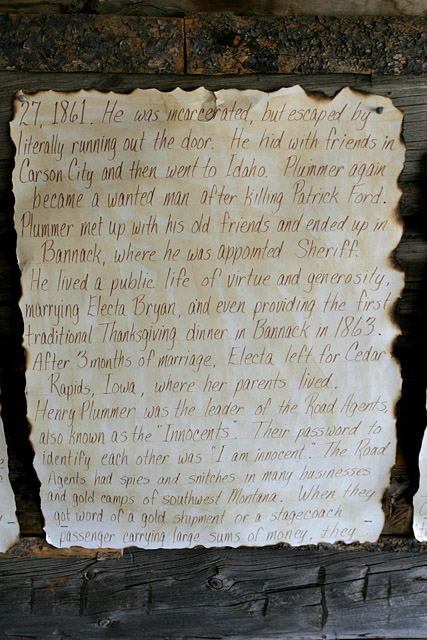 27, 1861. He was incarcerated, but escaped by
literally running out the door. He hid with friends in
Carson City and then went to Idaho. Plummer again
became a wanted man after killing Patrick Ford.
Plummer met up with his old friends and ended up in
Bannack, where he was appointed Sheriff.
He lived a public life of virtue and generosity,
marrying Electa Bryan, and even providing the first
traditional Thanksgiving dinner in Bannack in 1863.
After 3 months of marriage, Electa left for Cedar
Rapids, Iowa, where her parents lived.
Henry Plummer was the leader of the Road Agents,
also known as the "Innocents". Their password to
identify each other was "I am innocent." The Road
Agents had spies and snitches in many businesses
and gold camps of southwest Montana. When they
got word of a gold shipment or a stagecoach
passenger carrying large sums of money, they